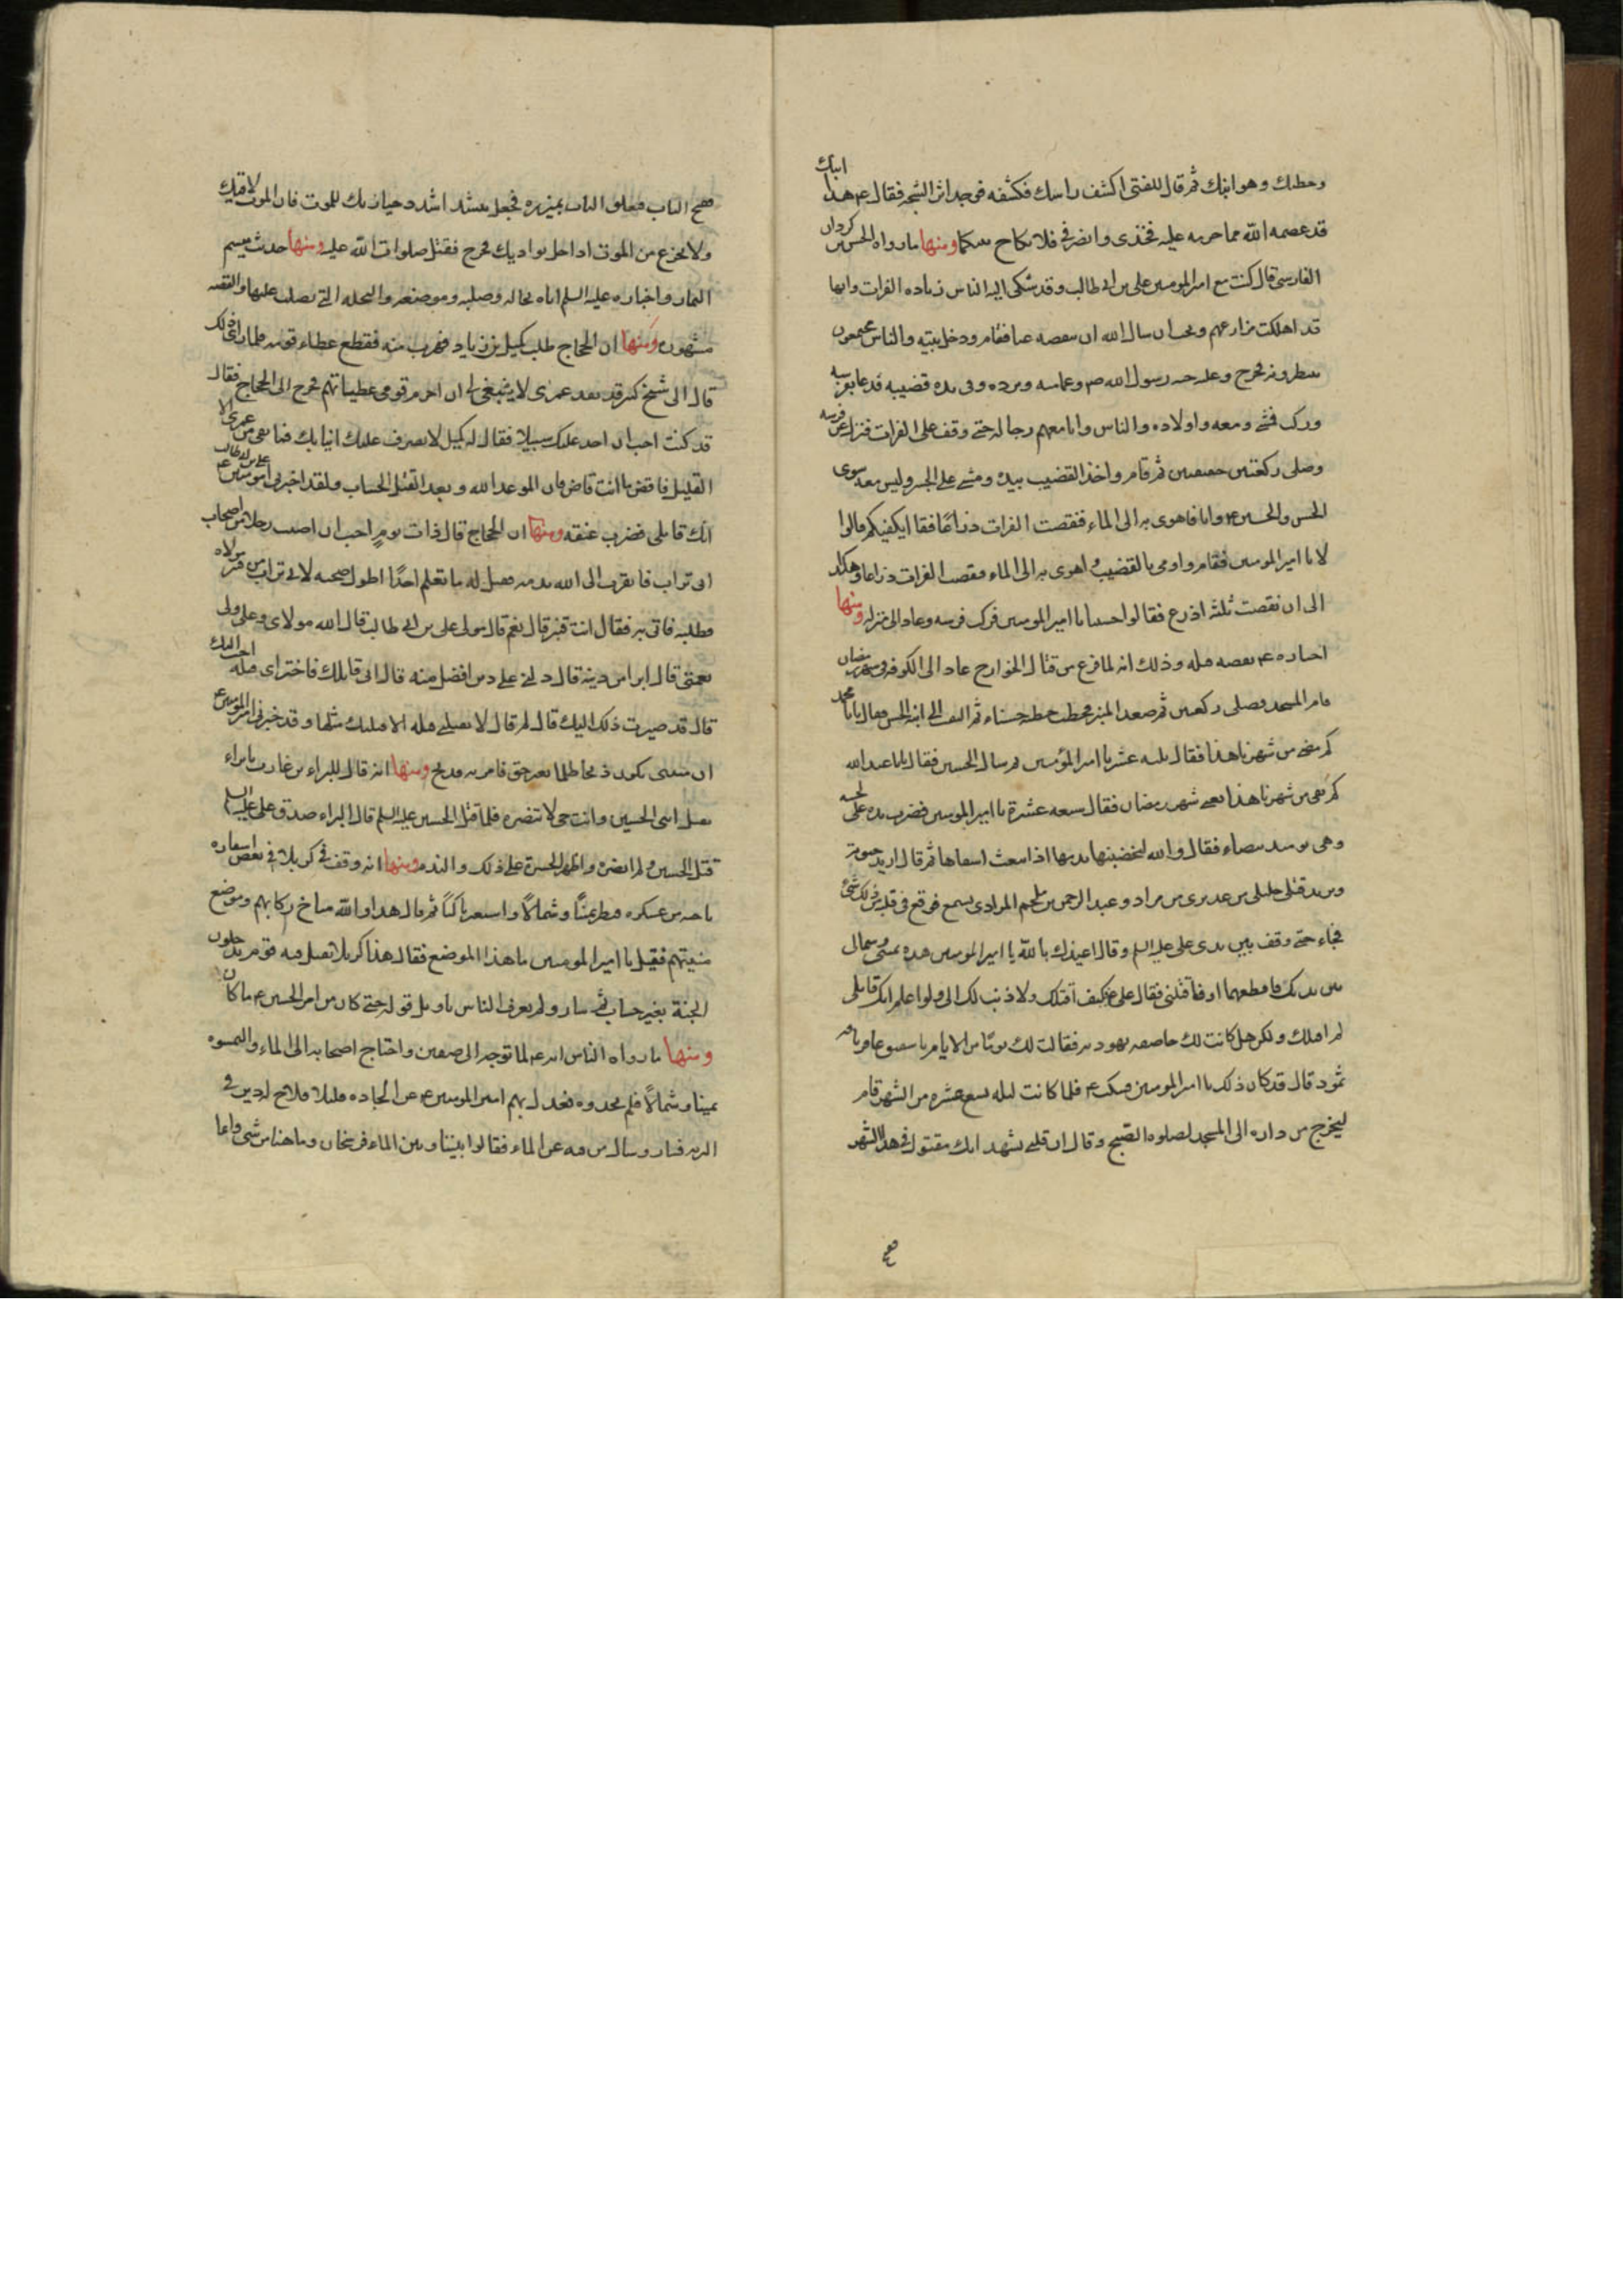 وحطبك وهو ابنك ثم قال للفتى اكشف راسك فكشفه فوجد اثر الشجه فقال ع هذا ابنك
قد عصمه الله مما حرمه عليه فخذى وانصرفى فلا نكاح بينكما ومنها ما رواه الحسن بن كردان
الفارسى قال كنت مع امير المومنين على بن ابى طالب وقد شكى اليه الناس زياده الفرات وانها
قد اهلكت مزارعهم ونحب ان تسال الله ان ينقصه عنا فقام ودخل بيته والناس مجتمعون
ينتظرونه فخرج وعليه جبه رسول الله ص وعمامته وبرده وفى يده قضيبه فدعا بفرسه
وركب فمشى ومعه واولاده والناس وانا معهم رجاله حتى وقف على الفرات فنزل عن فرسه
وصلى ركعتين خفيفتين ثم قام واخذ القضيب بيده ومشى على الجسر وليس معه سوى
الحسن والحسين ع وانا فاهوى به الى الماء فنقصت الفرات ذراعا فقال ايكفيكم قالوا
لا يا امير المومنين فقام واومى بالقضيب واهوى به الى الماء فنقصت الفرات ذراعا وهكذا
الى ان نقصت ثلثه اذرع فقالوا حسبنا يا امير المومنين فركب فرسه وعاد الى منزله ومنها
اخباره ع بقصه قتله وذلك انه لما فرغ من قتال الخوارج عاد الى الكوفه فى شهر رمضان
فام المسجد وصلى ركعتين ثم صعد المنبر فخطب خطبه حسناء ثم التفت الى ابنه الحسن فقال يا ابا محمد
كم مضى من شهرنا هذا فقال ثلثه عشر يا امير المؤمنين ثم سال الحسين فقال يا ابا عبد الله
كم بقى من شهرنا هذا يعنى شهر رمضان فقال سبعه عشرة يا امير المومنين فضرب يده على لحيته
وهى يومئذ بيضاء فقال والله ليخضبنها بدمها اذا انبعث اشقاها ثم قال اريد حيوته
ويريد قتلى خليلى من عذيرى من مراد وعبد الرحمن بن ملجم المرادى يسمع فوقع فى قلبه من ذلك شئ
فجاء حتى وقف بين يدى على عليه السلم وقال اعيذك بالله يا امير المومنين هذه يمينى وشمالى
بين يديك فاقطعهما او فاقتلنى فقال على ع كيف اقتلك ولا ذنب لك الى ولو اعلم انك قاتلى
لم اقتلك ولكن هل كانت لك حاضنه يهوديه فقالت لك يوما من الايام يا شقيق عاقر ناقه
ثمود قال قد كان ذلك يا امير المومنين فسكت ع فلما كانت ليله تسع عشره من الشهر قام
ليخرج من داره الى المسجد لصلوه الصبح وقال ان قلبى يشهد انك مقتول فى هذا الشهر
ففتح الباب فتعلق الباب بميزره فجعل ينشد اشدد حيازيمك للموت فان الموت لاقيك
ولا تجزع من الموت اذا حل بواديك فخرج فقتل صلوات الله عليه ومنها حديث ميثم
التمار واخباره عليه السلم اياه بحاله وصلبه وموضعه والنخله التى يصلب عليها والقصه
مشهوره ومنها ان الحجاج طلب كميل بن زياد فهرب منه فقطع عطاء قومه فلما راى ذلك
قال انى شيخ كبير قد نفد عمرى لا ينبغى لى ان احرم قومى عطيباتهم فخرج الى الحجاج فقال
قد كنت احب ان اجد عليك سبيلا فقال له كميل لا تصرف على انيابك فما بقى من عمرى الا
القليل فاقض ما انت قاض فان الموعد الله وبعد القتل الحساب ولقد اخبرنى امير المومنين على بن ابى طالب ع
انك قاتلى فضرب عنقه ومنها ان الحجاج قال ذات يوم احب ان اصيب رجلا من اصحاب
ابى تراب فاتقرب الى الله بدمه فقيل له ما نعلم احدا اطول صحبه لابى تراب من قنبر مولاه
فطلبه فاتى به فقال انت قنبر قال نعم قال مولى على بن ابى طالب قال الله مولاى وعلى ولى
نعمتى قال ابرا من دينه قال دلنى على دين افضل منه قال انى قاتلك فاختر اى قتله احب اليك
قال قد صيرت ذلك اليك قال لم قال لا تقتلنى قتله الا قتلتك مثلها وقد خبرنى امير المومنين ع
ان منيتى تكون ذبحا ظلما بغير حق فامر به فذبح ومنها انه قال للبراء بن عازب يا براء
يقتل ابنى الحسين وانت حى لا تنصره فلما قتل الحسين عليه السلم قال البراء صدق على عليه السلم
قتل الحسين ولم انصره واظهر الحسرة على ذلك والندم ومنها انه وقف فى كربلا فى بعض اسفاره
ناحيه من عسكره فنظر يمينا وشمالا واستعبر باكيا ثم قال هذا والله مناخ ركابهم وموضع
منيتهم فقيل يا امير المومنين ما هذا الموضع فقال هذا كربلا يقتل فيه قوم يدخلون
الجنة بغير حساب ثم سار ولم يعرف الناس تاويل قوله حتى كان من امر الحسين ع ما كان
ومنها ما رواه الناس انه ع لما توجه الى صفين واحتاج اصحابه الى الماء والتمسوه
يمينا وشمالا فلم يجدوه فعدل بهم امير المومنين ع عن الجاده قليلا فلاح له دير فى
البريه فسار وسال من فيه عن الماء فقالوا بيننا وبين الماء فرسخان وما هنا من شى وانما